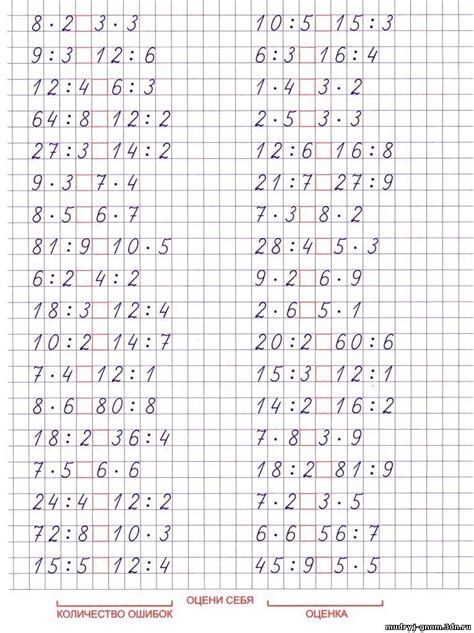 8 · 2 □ 3 · 3
9 : 3 □ 12 : 6
12 : 4 □ 6 : 3
64 : 8 □ 12 : 2
27 : 3 □ 14 : 2
9 · 3 □ 7 · 4
8 · 5 □ 6 · 7
81 : 9 □ 10 · 5
6 : 2 □ 4 : 2
18 : 3 □ 12 : 4
10 : 2 □ 14 : 7
7 · 4 □ 12 : 1
8 · 6 □ 80 : 8
18 : 2 □ 36 : 4
7 · 5 □ 6 · 6
24 : 4 □ 12 : 2
72 : 8 □ 10 · 3
15 : 5 □ 12 : 4
10 : 5 □ 15 : 3
6 : 3 □ 16 : 4
1 · 4 □ 3 · 2
2 · 5 □ 3 · 3
12 : 6 □ 16 : 8
21 : 7 □ 27 : 9
7 · 3 □ 8 · 2
28 : 4 □ 5 · 3
9 · 2 □ 6 · 9
2 · 6 □ 5 · 1
20 : 2 □ 60 : 6
15 : 3 □ 12 : 1
14 : 2 □ 16 : 2
7 · 8 □ 3 · 9
18 : 2 □ 81 : 9
7 · 2 □ 3 · 5
6 · 6 □ 56 : 7
45 : 9 □ 5 · 5
ОЦЕНИ СЕБЯ
КОЛИЧЕСТВО ОШИБОК
ОЦЕНКА
mudryj-gnom.3dn.ru